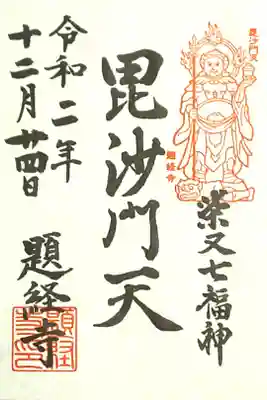 毘沙門天
題経寺
柴又七福神
毘沙門天
令和二年
十二月廿四日
題経寺
題経寺之印